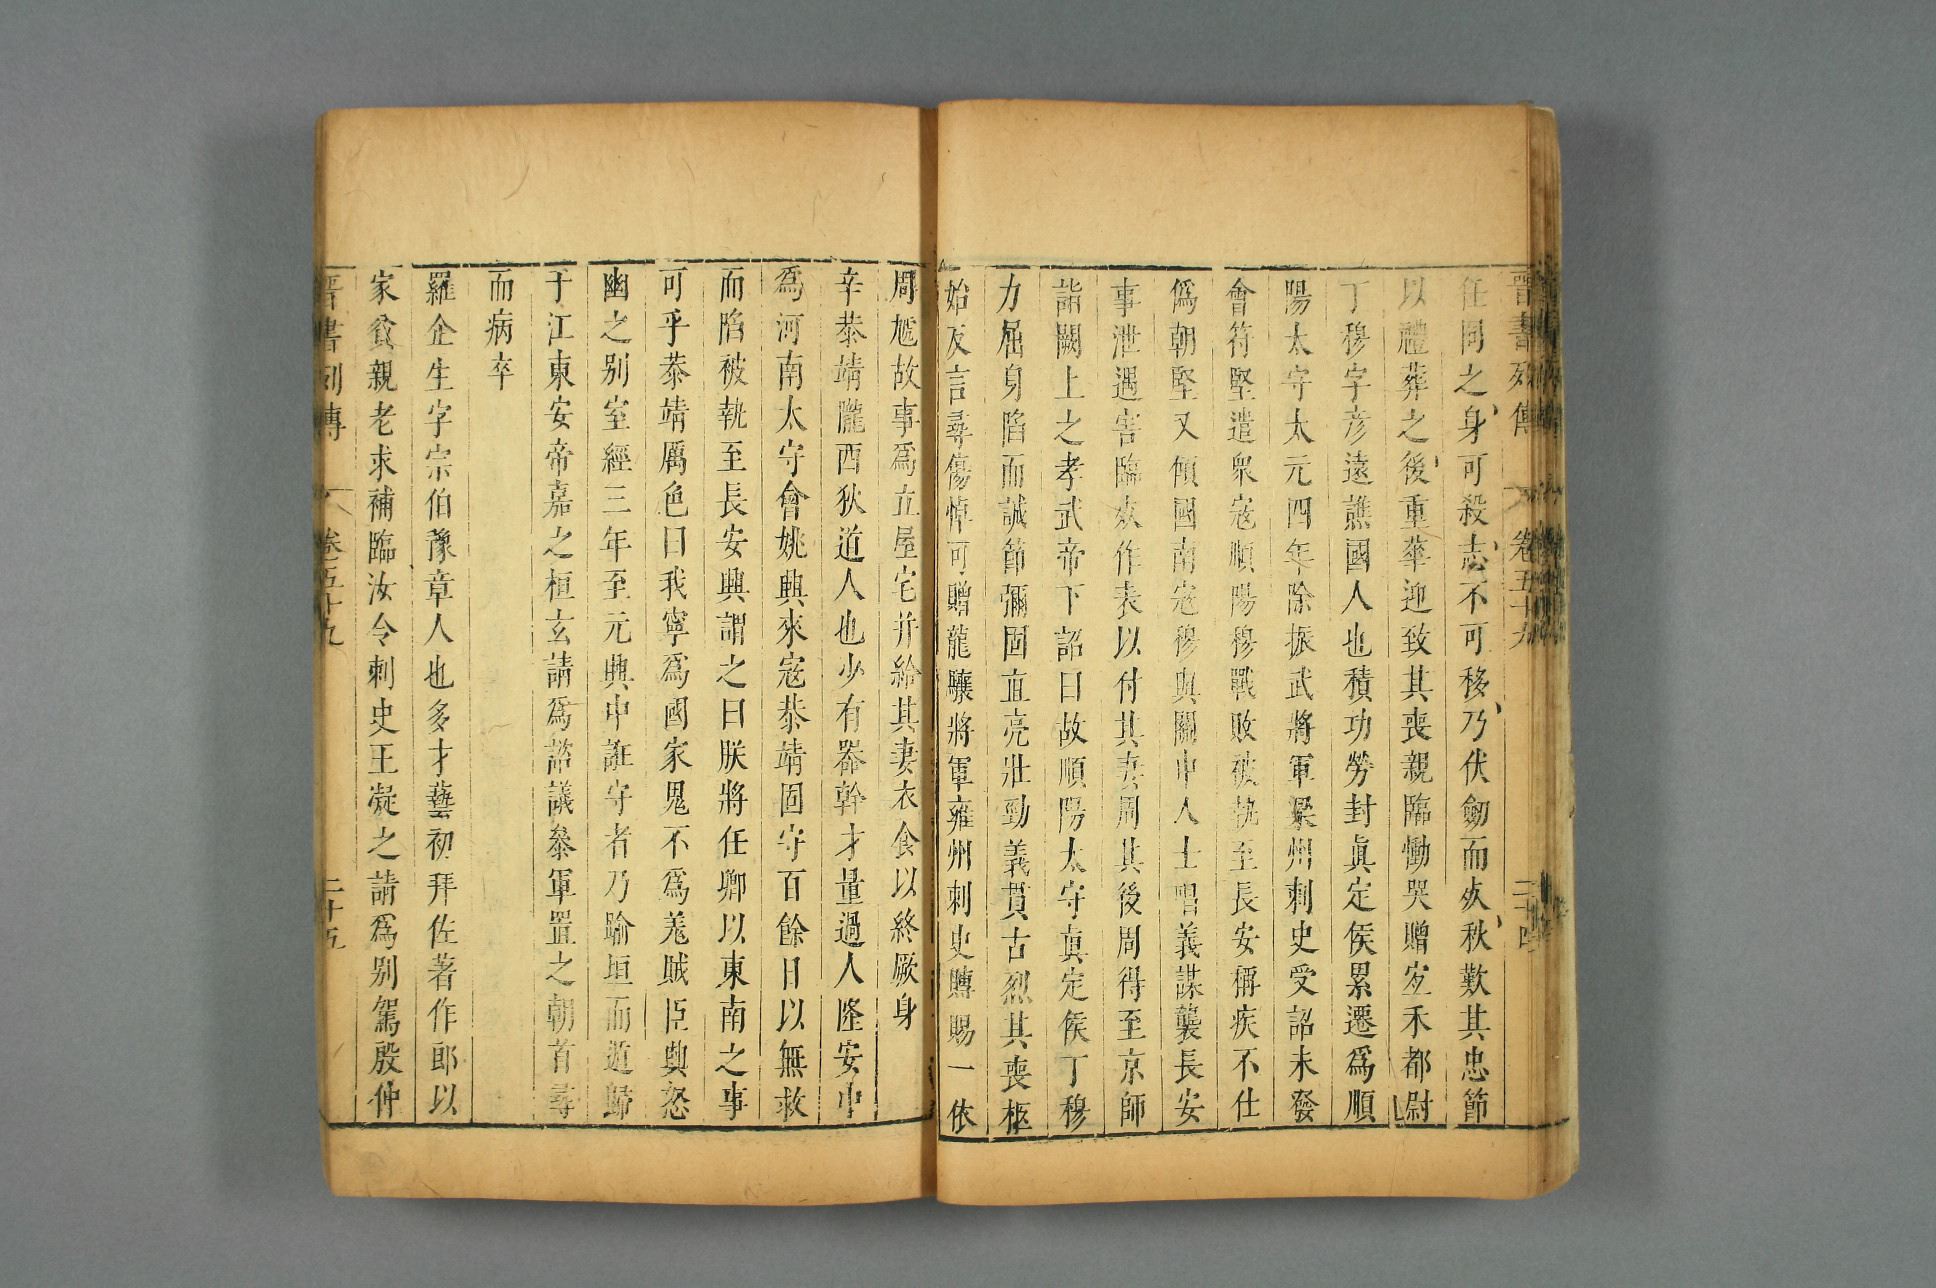 晉書列傳 卷五十九 二十四
任同之身可殺志不可移乃伏劒而㱙秋歎其忠節
以禮葬之後重華迎致其喪親臨慟哭贈宜禾都尉
丁穆字彦遠譙國人也積功勞封眞定侯累遷爲順
陽太守太元四年除振武將軍梁州刺史受詔未發
會苻堅遣衆寇順陽穆戰敗被執至長安稱疾不仕
僞朝堅又傾國南寇穆與關中人士唱義謀襲長安
事泄遇害臨㱙作表以付其妻周其後周得至京師
詣闕上之孝武帝下詔曰故順陽太守眞定侯丁穆
力屈身陷而誠節彌固直亮壯勁義貫古烈其喪柩
始反言尋傷悼可贈龍驤將軍雍州刺史賻賜一依
周虓故事爲立屋宅并給其妻衣食以終厥身
辛恭靖隴西狄道人也少有器幹才量過人隆安中
爲河南太守會姚興來寇恭靖固守百餘日以無救
而陷被執至長安興謂之曰朕將任卿以東南之事
可乎恭靖厲色曰我寧爲國家鬼不爲羌賊臣興怒
幽之别室經三年至元興中誑守者乃踰垣而遁歸
于江東安帝嘉之桓玄請爲諮議叅軍置之朝首尋
而病卒
羅企生字宗伯豫章人也多才藝初拜佐著作郎以
家貧親老求補臨汝令刺史王凝之請爲别駕殷仲
晉書列傳 卷五十九 二十五